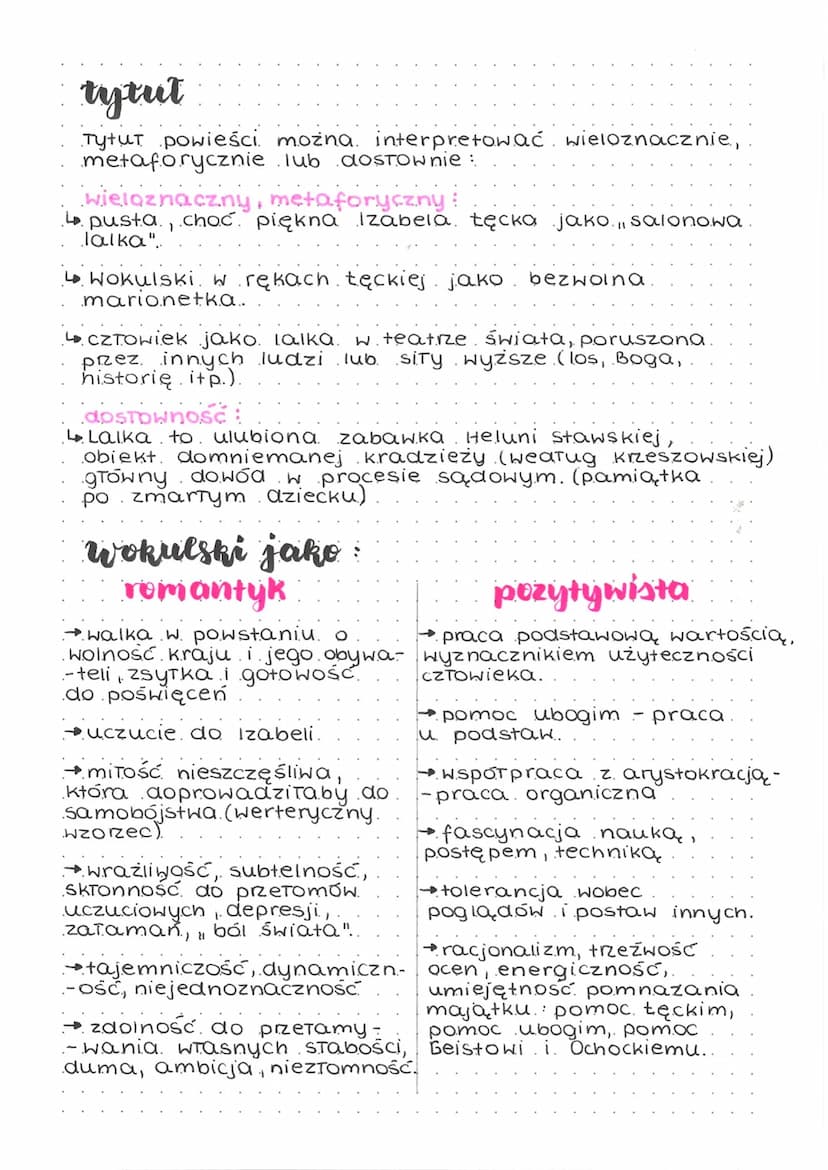 tytuł
Tytuł powieści można interpretować wieloznacznie,
metaforycznie lub dosłownie:
wieloznaczny, metaforyczny:
↳ pusta, choć piękna Izabela Łęcka jako „salonowa
lalka".
↳ Wokulski w rękach Łęckiej jako bezwolna
marionetka.
↳ człowiek jako lalka w teatrze świata, poruszona
przez innych ludzi lub siły wyższe (los, Boga,
historię itp.)
dosłowność:
↳ Lalka to ulubiona zabawka Heluni Stawskiej,
obiekt domniemanej kradzieży (według Krzeszowskiej)
główny dowód w procesie sądowym. (pamiątka
po zmarłym dziecku)
Wokulski jako:
romantyk
→ walka w powstaniu o
wolność kraju i jego obywa-
-teli, zsyłka i gotowość
do poświęceń
→ uczucie do Izabeli
→ miłość nieszczęśliwa,
która doprowadziłaby do
samobójstwa (werteryczny
wzorzec)
→ wrażliwość, subtelność,
skłonność do przełomów
uczuciowych, depresji,
załamań, „ból świata"
→ tajemniczość, dynamiczn-
-ość, niejednoznaczność
→ zdolność do przełamy-
-wania własnych słabości,
duma, ambicja, niezłomność.
pozytywista
→ praca podstawową wartością,
wyznacznikiem użyteczności
człowieka.
→ pomoc ubogim - praca
u podstaw.
→ współpraca z arystokracją-
-praca organiczna
→ fascynacja nauką,
postępem, techniką
→ tolerancja wobec
poglądów i postaw innych.
→ racjonalizm, trzeźwość
ocen, energiczność,
umiejętność pomnażania
majątku: pomoc Łęckim,
pomoc ubogim, pomoc
Geistowi i Ochockiemu.